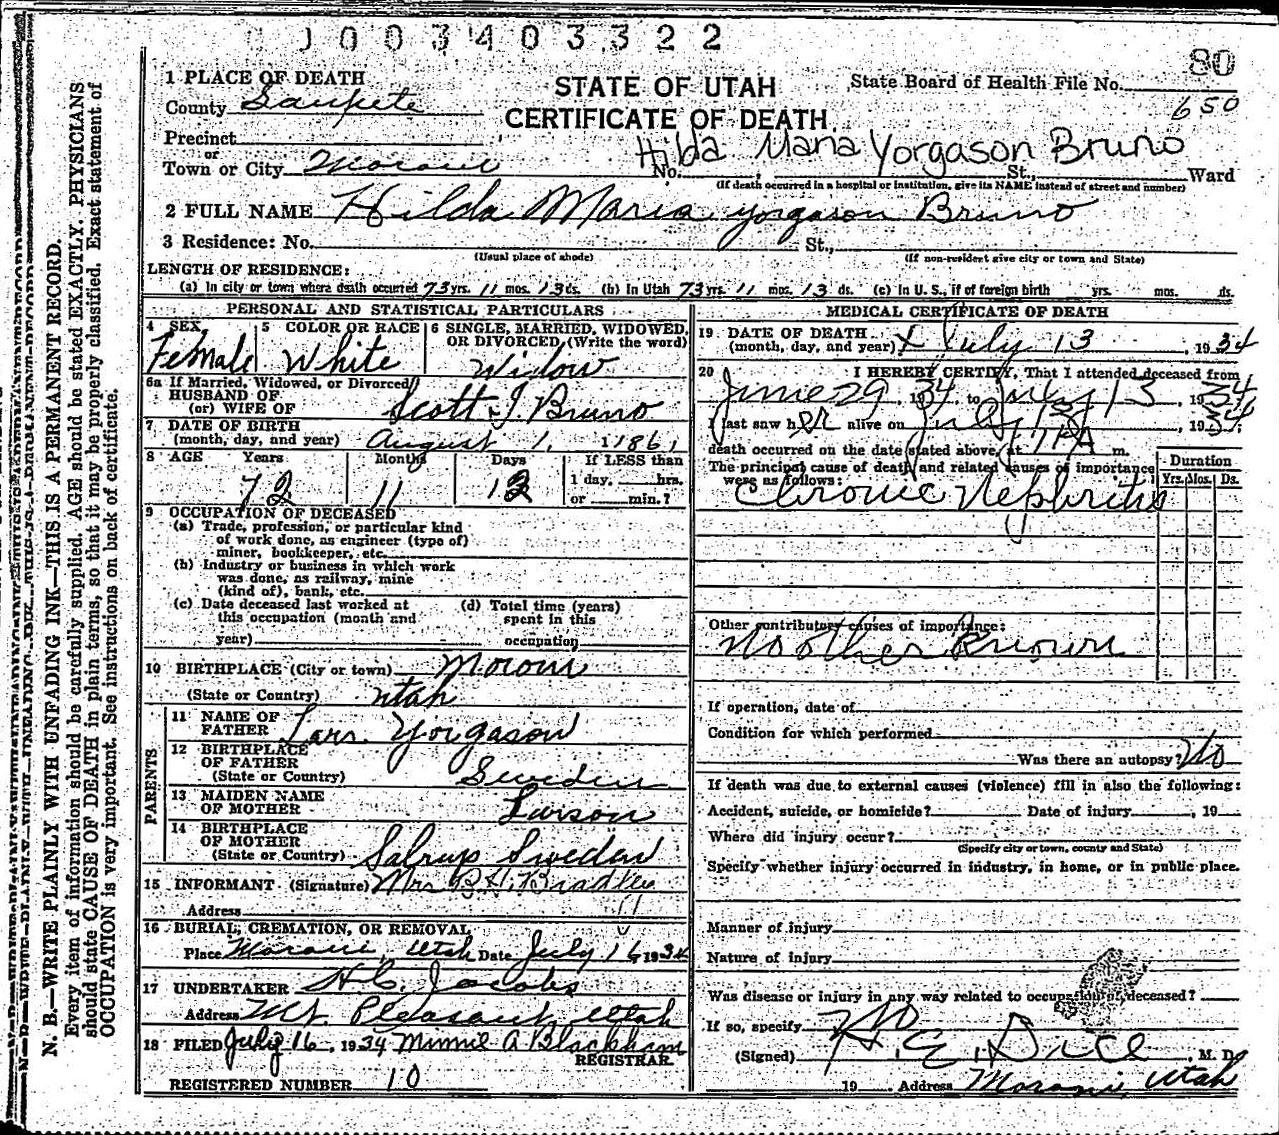 0 0 3 4 0 3 3 2 2
80
650
1 PLACE OF DEATH
County Sanpete
Precinct
or
Town or City Moroni
STATE OF UTAH
CERTIFICATE OF DEATH
State Board of Health File No.
Hilda Maria Yorgason Bruno
No. St., Ward
(If death occurred in a hospital or institution, give its NAME instead of street and number)
2 FULL NAME Hilda Maria Yorgason Bruno
3 Residence: No. St.,
(Usual place of abode) (If non-resident give city or town and State)
LENGTH OF RESIDENCE:
(a) In city or town where death occurred 73 yrs. 11 mos. 13 ds. (b) In Utah 73 yrs. 11 mos. 13 ds. (c) In U. S., if of foreign birth yrs. mos. ds.
PERSONAL AND STATISTICAL PARTICULARS
4 SEX Female
5 COLOR OR RACE White
6 SINGLE, MARRIED, WIDOWED, OR DIVORCED (Write the word)
Widow
6a If Married, Widowed, or Divorced
HUSBAND OF
(or) WIFE OF Scott J. Bruno
7 DATE OF BIRTH
(month, day, and year) August 1, 1861
8 AGE Years Months Days If LESS than
72 11 12 1 day, hrs.
or min.?
9 OCCUPATION OF DECEASED
(a) Trade, profession, or particular kind
of work done, as engineer (type of)
miner, bookkeeper, etc.
(b) Industry or business in which work
was done, as railway, mine
(kind of), bank, etc.
(c) Date deceased last worked at
this occupation (month and
year)
(d) Total time (years)
spent in this
occupation
10 BIRTHPLACE (City or town) Moroni
(State or Country) Utah
PARENTS
11 NAME OF
FATHER Lars Yorgason
12 BIRTHPLACE
OF FATHER
(State or Country) Sweden
13 MAIDEN NAME
OF MOTHER Larson
14 BIRTHPLACE
OF MOTHER
(State or Country) Sweden
15 INFORMANT (Signature) Mrs B. H. Bradley
Address "
16 BURIAL, CREMATION, OR REMOVAL
Place Moroni, Utah Date July 16 1934
17 UNDERTAKER H.C. Jacobs
Address Mt. Pleasant, Utah
18 FILED July 16, 1934 Minnie A Blackham
REGISTRAR
REGISTERED NUMBER 10
MEDICAL CERTIFICATE OF DEATH
19 DATE OF DEATH
(month, day, and year) July 13, 1934
20 I HEREBY CERTIFY, That I attended deceased from
June 29, 1934 to July 13, 1934
I last saw her alive on July 13, 1934;
death occurred on the date stated above, at m.
The principal cause of death and related causes of importance
were as follows:
Duration
Yrs. Mos. Ds.
Chronic Nephritis
Other contributory causes of importance:
No other known
If operation, date of
Condition for which performed
Was there an autopsy? No
If death was due to external causes (violence) fill in also the following:
Accident, suicide, or homicide? Date of injury , 19
Where did injury occur?
(Specify city or town, county and State)
Specify whether injury occurred in industry, in home, or in public place.
Manner of injury
Nature of injury
Was disease or injury in any way related to occupation of deceased?
If so, specify No
(Signed) H. E. Dice, M. D.
19 Address Moroni, Utah
N. B.—WRITE PLAINLY WITH UNFADING INK—THIS IS A PERMANENT RECORD.
Every item of information should be carefully supplied. AGE should be stated EXACTLY. PHYSICIANS
should state CAUSE OF DEATH in plain terms, so that it may be properly classified. Exact statement of
OCCUPATION is very important. See instructions on back of certificate.